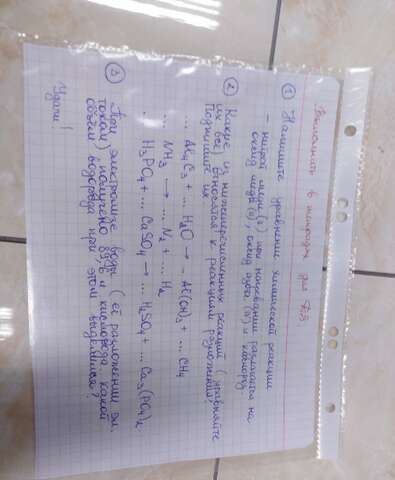 Выполнить в тетрадях для П/З
① Напишите уравнение химической реакции
– нитрат меди (II) при нагревании разлагается на
оксид меди (II), оксид азота (IV) и кислород.
② Какие из нижеперечисленных реакций (уравняйте
их все) относятся к реакциям разложения?
Подпишите их
... Al₄C₃ + ... H₂O → ... Al(OH)₃ + ... CH₄
... NH₃ → ... N₂ + ... H₂
. H₃PO₄ + ... CaSO₄ → ... H₂SO₄ + ... Ca₃(PO₄)₂
③ При электролизе воды (её разложении эл.
током) получено 89,6 л кислорода. Какой
объём водорода при этом выделился?
Удачи!